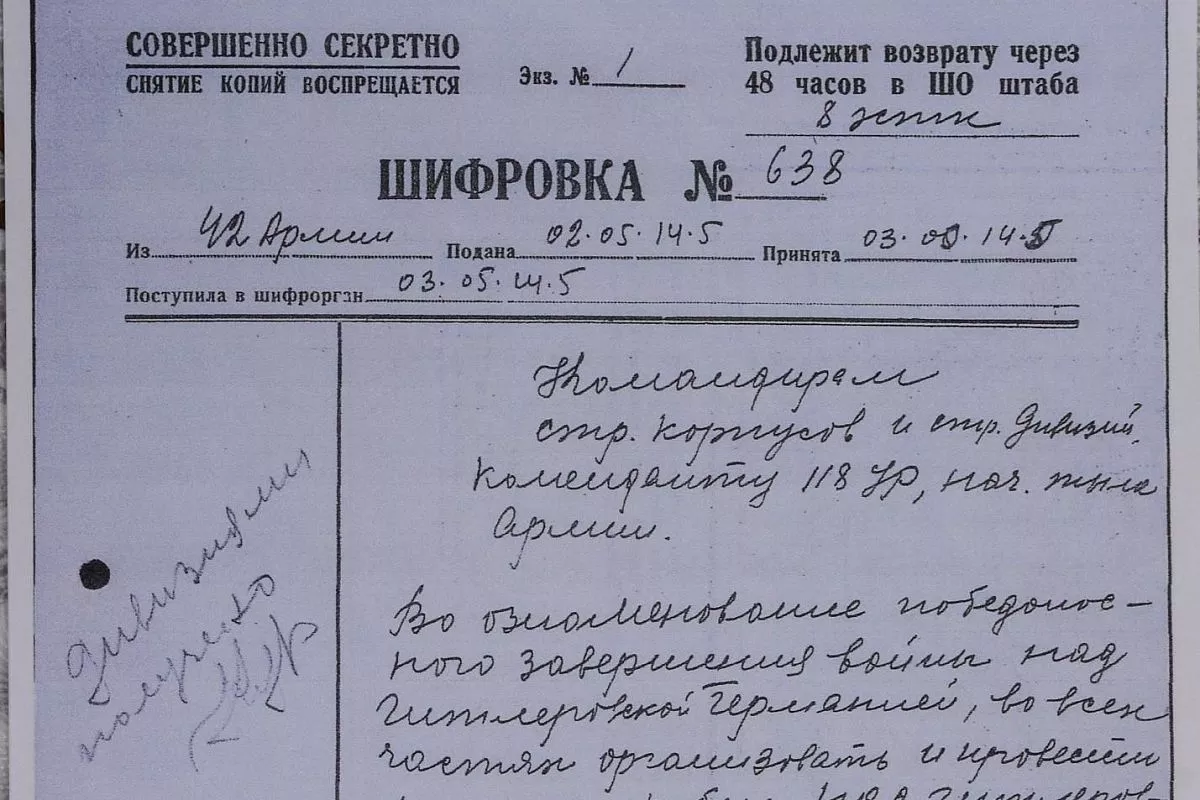 СОВЕРШЕННО СЕКРЕТНО
СНЯТИЕ КОПИЙ ВОСПРЕЩАЕТСЯ
Экз. № 1
Подлежит возврату через
48 часов в ШО штаба
8 эстк
ШИФРОВКА № 638
Из 42 Армии Подана 02.05.14.5 Принята 03.05.14.5
Поступила в шифрорган 03.05.14.5
Командирам
стр. корпусов и стр. дивизий,
Коменданту 118 УР, нач. тыла
Армии.
Во ознаменование победонос-
ного завершения войны над
Гитлеровской Германией, во всех
частях организовать и провести
дивизиями
получено